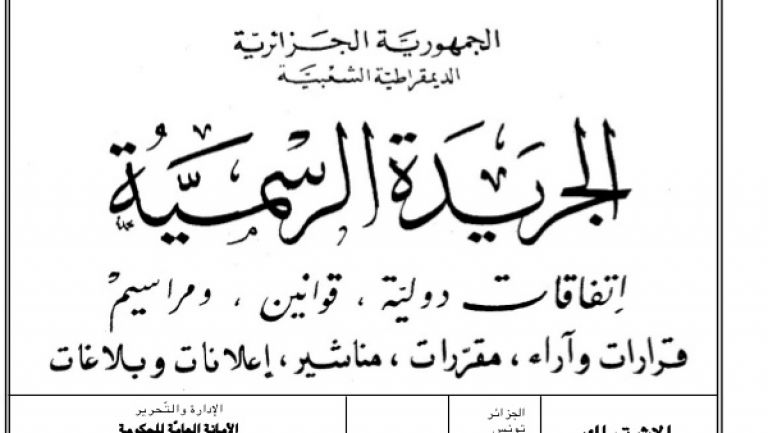 الجمهورية الجزائرية
الديمقراطية الشعبية
الجريدة الرسمية
إتفاقات دولية ، قوانين ، ومراسيم
قرارات وآراء ، مقررات ، مناشير ، إعلانات وبلاغات
الجزائر
تونس
الإدارة والتحرير
الأمانة العامة للحكومة